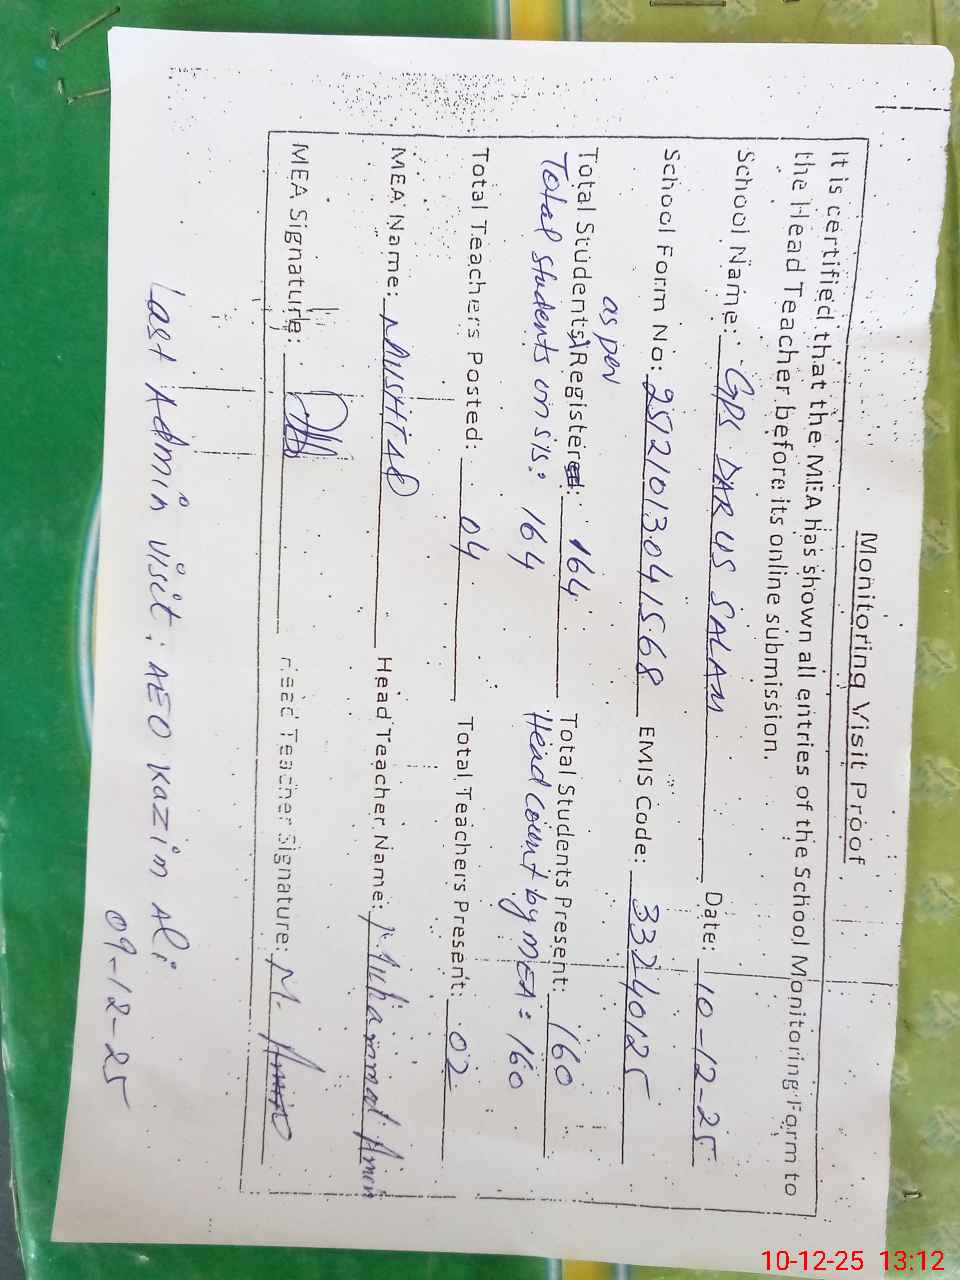 Monitoring Visit Proof
It is certified that the MEA has shown all entries of the School Monitoring Form to
the Head Teacher before its online submission.
School Name: GPS DAR US SALAM Date: 10-12-25
School Form No: 2512101304 1568 EMIS Code: 33240125
as per
Total Students Registered: 164 Total Students Present: 160
Total students in sis: 164 Head count by MEA: 160
Total Teachers Posted: 04 Total Teachers Present: 02
MEA Name: MUSHTAQ Head Teacher Name: Muhammad Amin
MEA Signature: Head Teacher Signature: M. Amin
Last Admin visit: AEO Kazim Ali
09-12-25
10-12-25 13:12